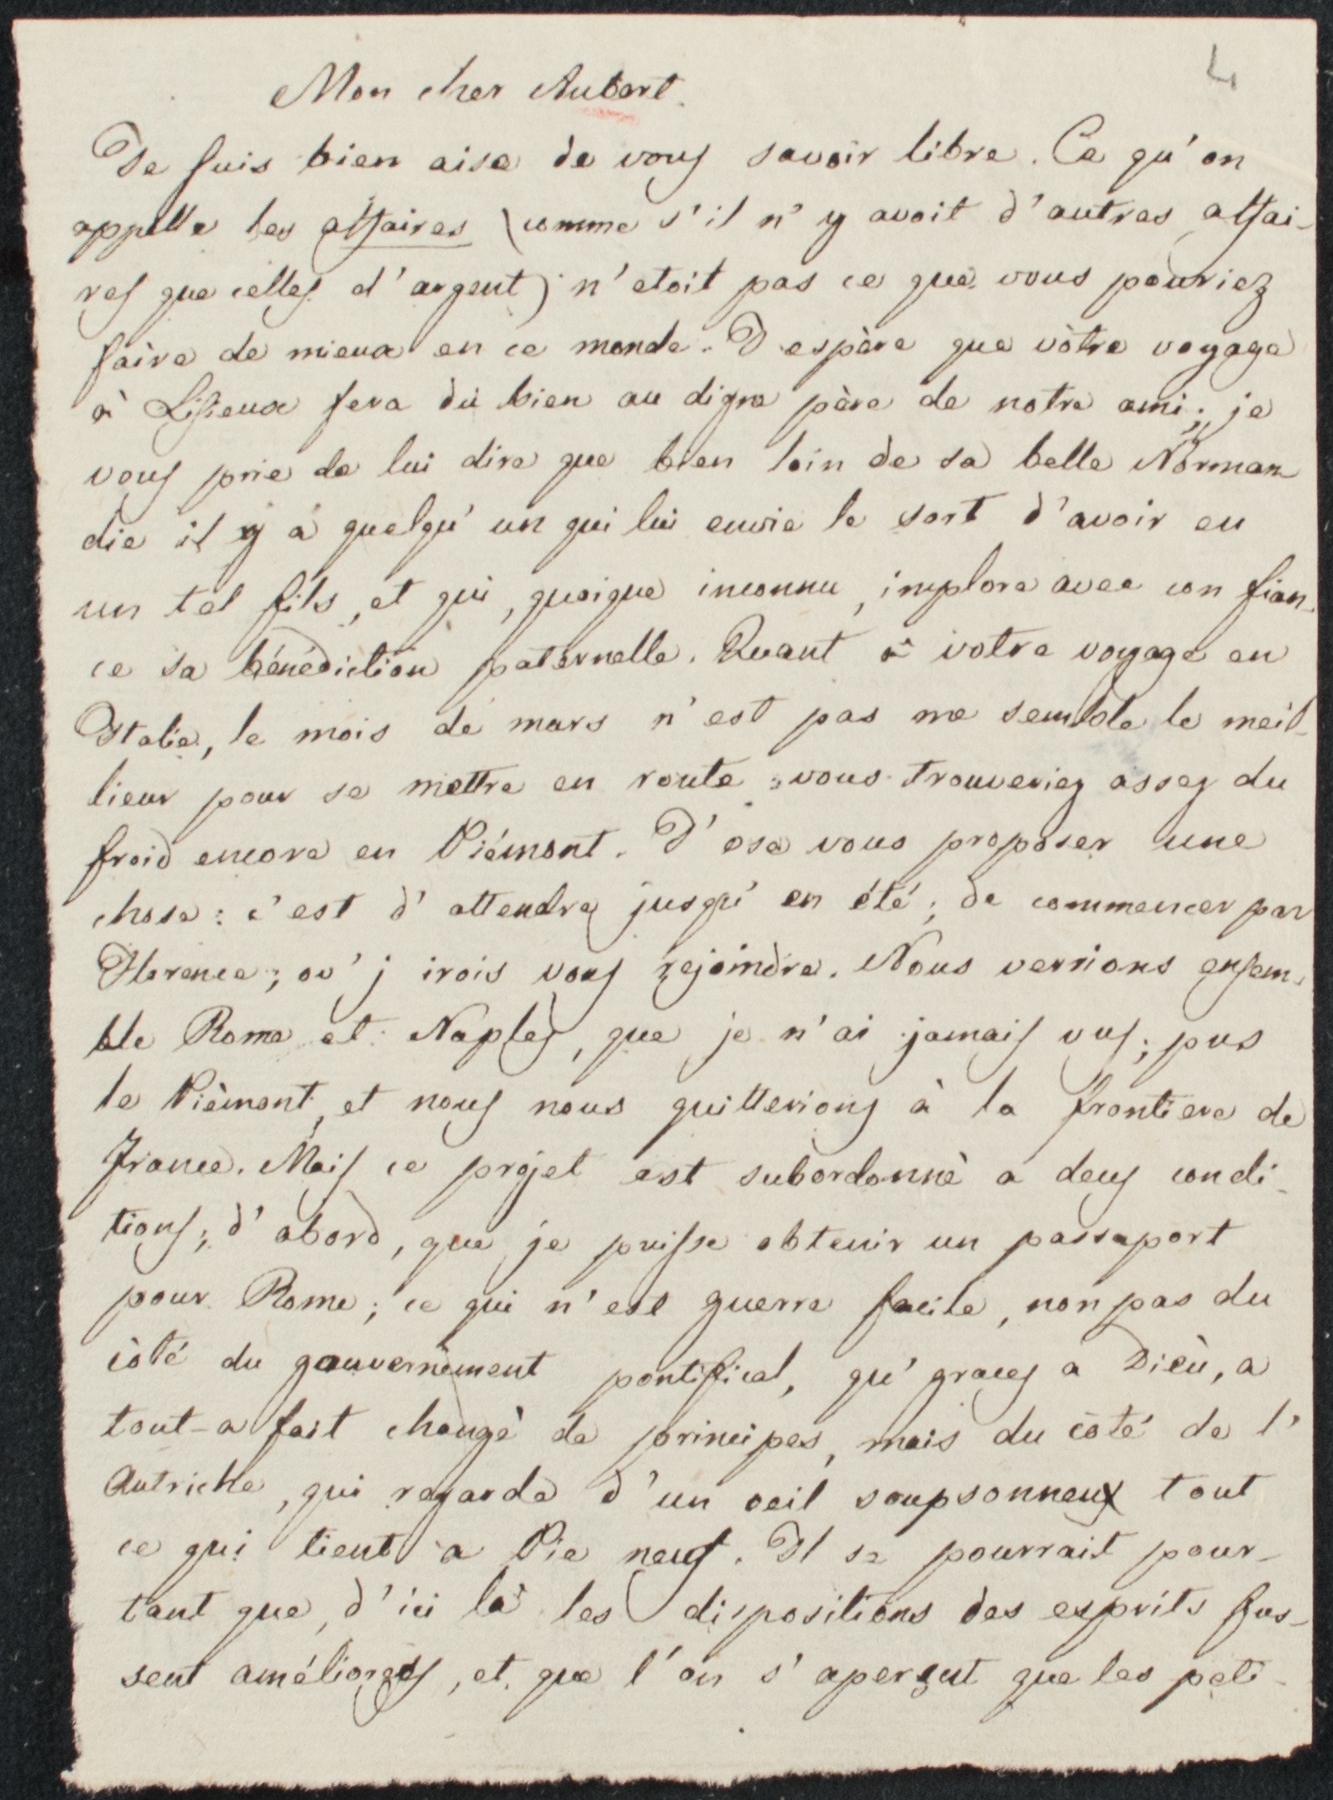 4
Mon cher Aubert.
Je suis bien aise de vous savoir libre. Ce qu'on
appelle les affaires (comme s'il n'y avoit d'autres affai-
res que celles d'argent) n'etoit pas ce que vous pouriez
faire de mieux en ce monde. J'espère que vòtre voyage
à Lisieux fera du bien au digne père de notre ami; je
vous prie de lui dire que bien loin de sa belle Norman-
die il y à quelqu'un qui lui envie le sort d'avoir eu
un tel fils, et qui, quoique inconnu, implore avec con fian-
ce sa bénédiction paternelle. Quant à votre voyage en
Italie, le mois de mars n'est pas me semble le meil-
lieur pour se mettre en route; vous trouveriez assez du
froid encore en Piémont. J'ose vous proposer une
chose: c'est d'attendre jusqu'en été; de commencer par
Florence; où j'irois vous rejoindre. Nous verrions ensem-
ble Rome et Naples, que je n'ai jamais vus; pus
le Pièmont, et nous nous quitterions à la frontiere de
France. Mais ce projet est subordonnè a deus condi-
tions; d'abord, que je puisse obtenir un passaport
pour Rome; ce qui n'est guerre facile, non pas du
còté du gouvernement pontifical, qu'graces a Dieù, a
tout-a fait changè de principes, mais du còté de l'
Autriche, qui regarde d'un oeil soupsonneux tout
ce qui tient a Pie neuf. Il se pourrait pour-
tant que, d'ici là les dispositions des esprits fus-
sent améliorées, et que l'on s'aperçut que les peti-